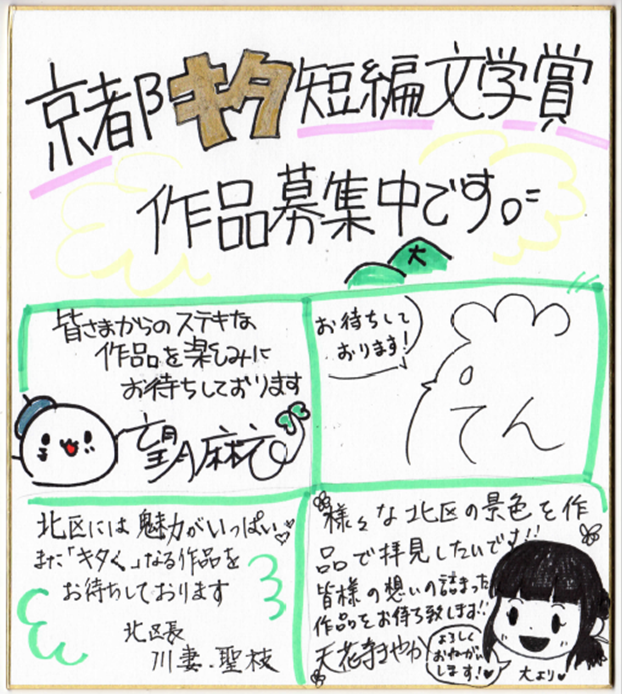 京都キタ短編文学賞
作品募集中です。
大
皆さまからのステキな
作品を楽しみに
お待ちしております
望月麻衣
お待ちして
おります!
てん
北区には魅力がいっぱい
また「キタく」なる作品を
お待ちしております
北区長
川妻 聖枝
様々な北区の景色を作
品で拝見したいです!!
皆様の想いの詰まった
作品をお待ち致します!!
天花寺さやか
よろしく
おねがい
します!
大より